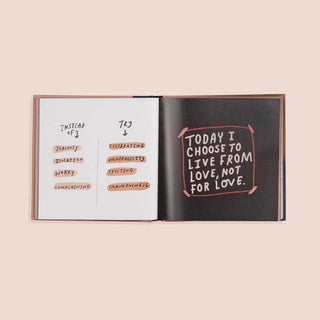 INSTEAD
OF
TRY
JEALOUSY
CELEBRATING
ISOLATION
VULNERABILITY
WORRY
TRUSTING
COMPLAINING
THANKFULNESS
TODAY I
CHOOSE TO
LIVE FROM
LOVE, NOT
FOR LOVE.